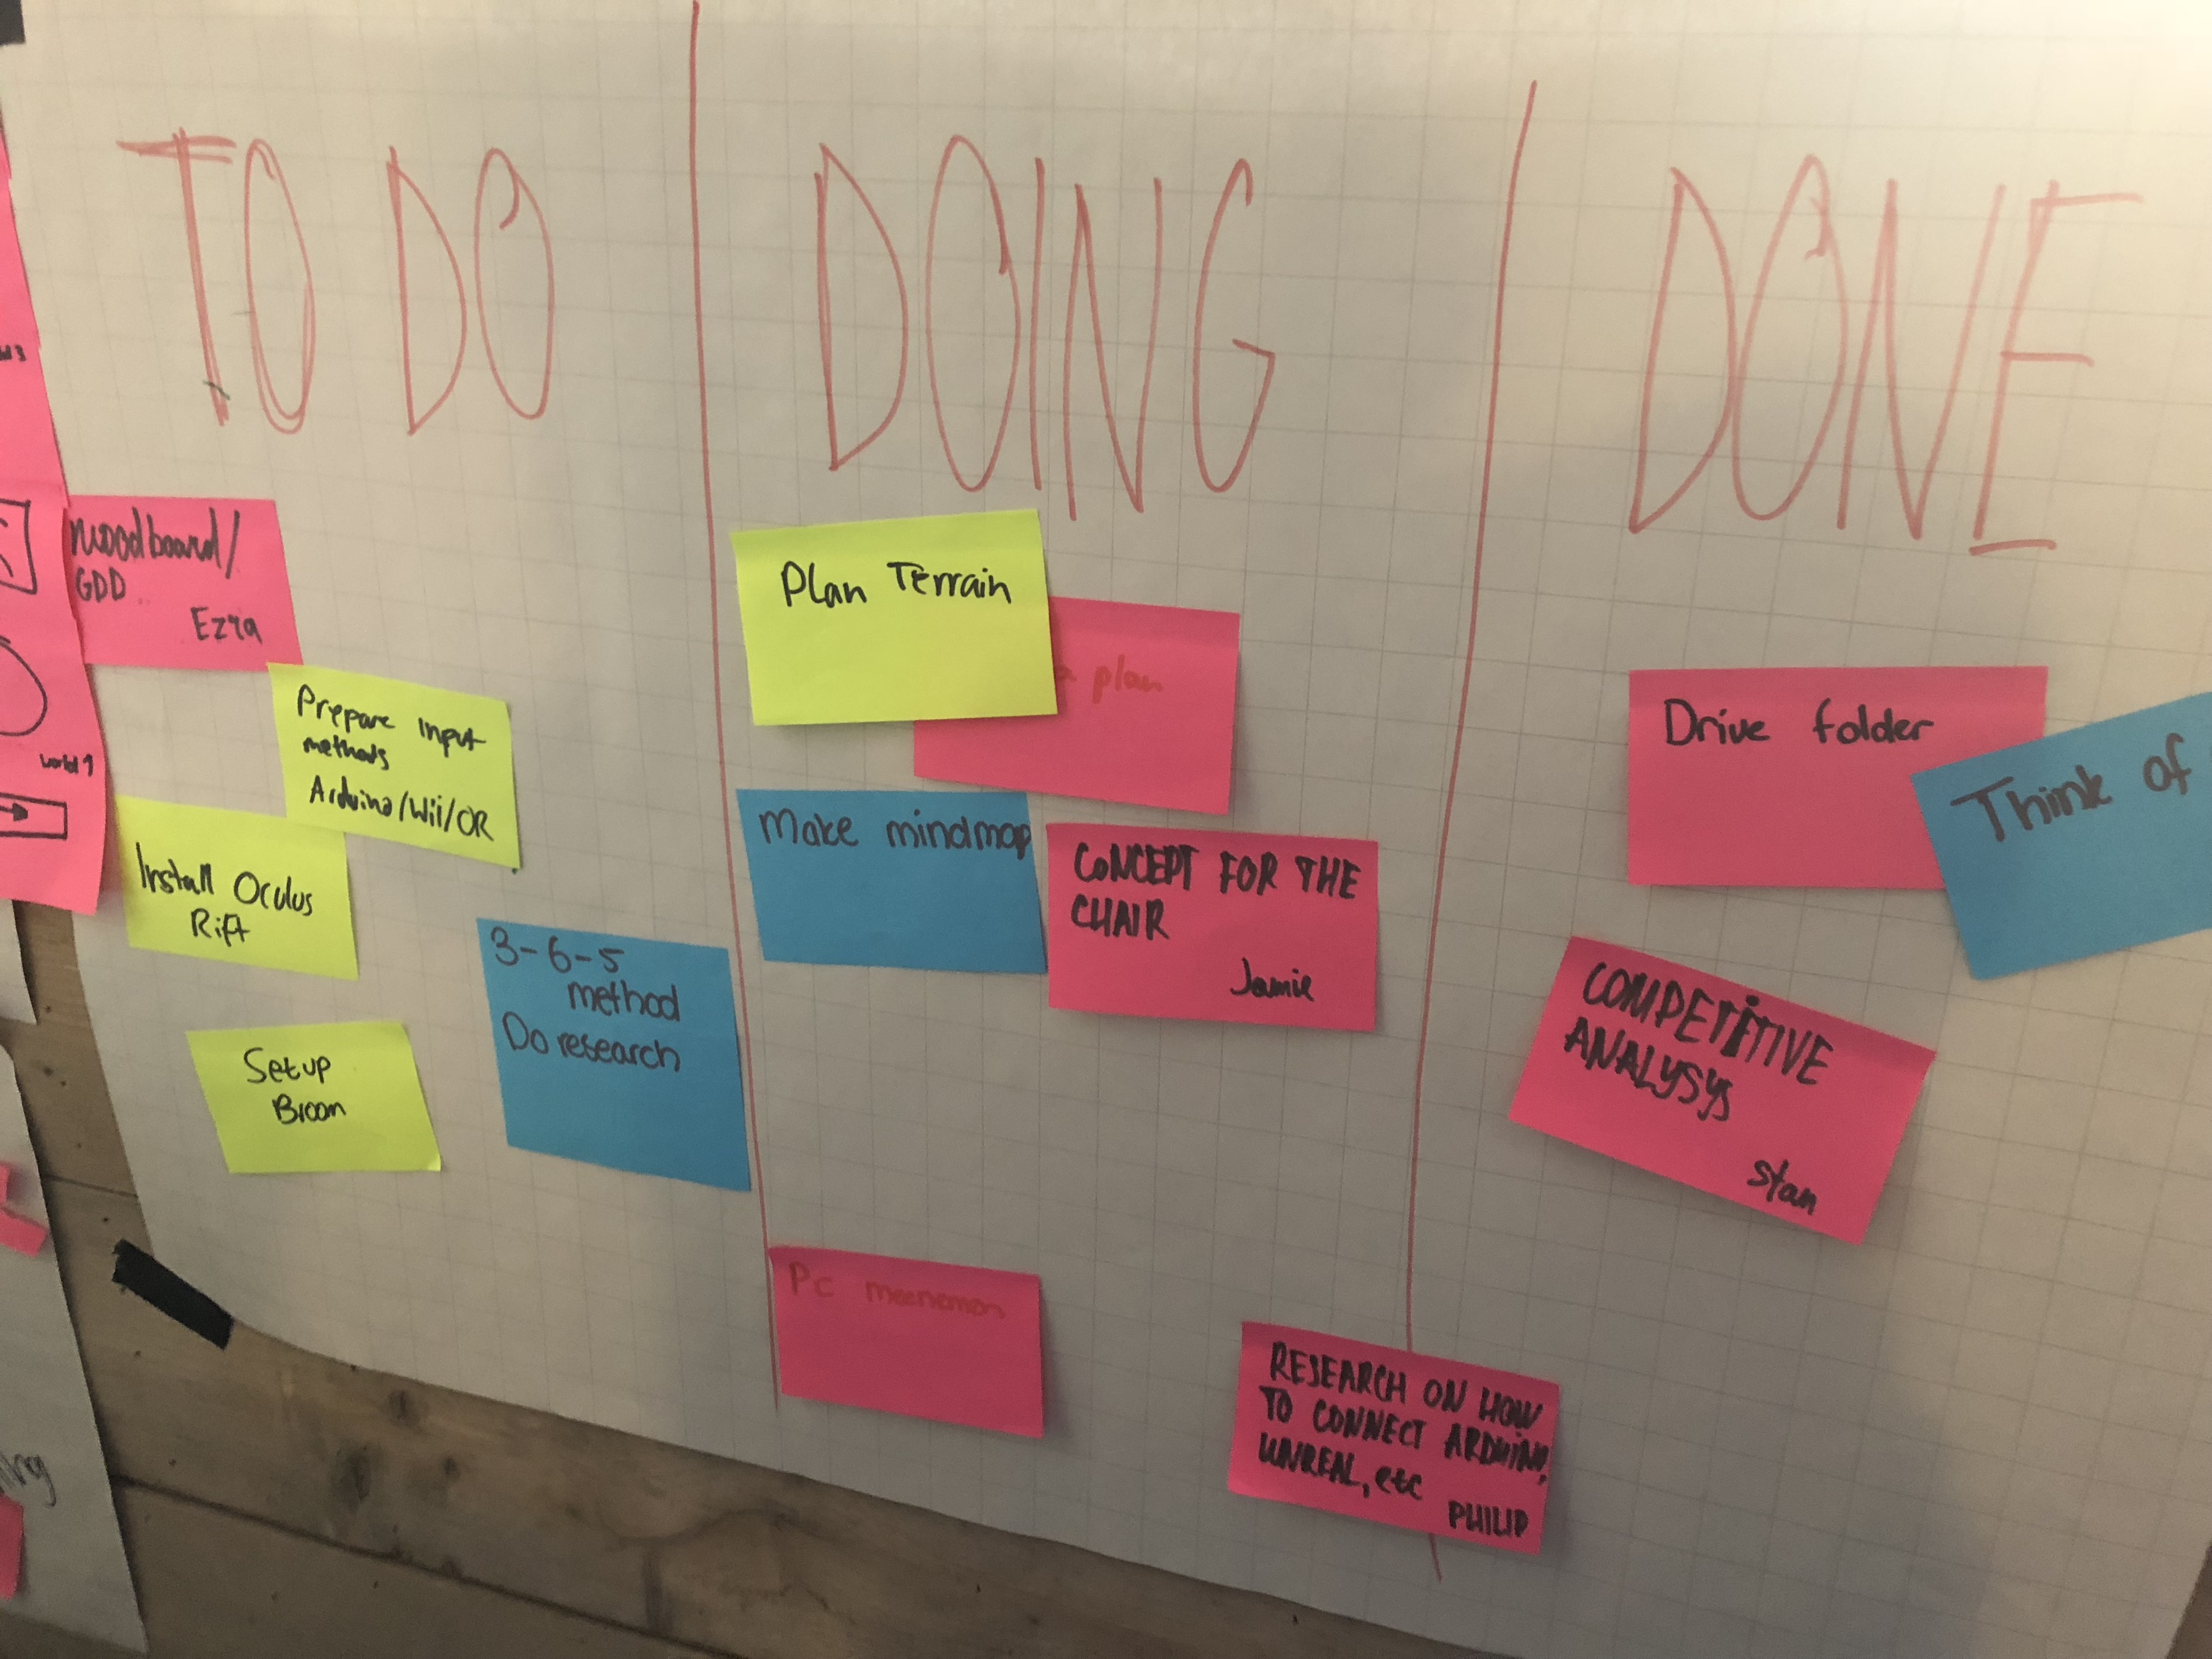 TO DO
DOING
DONE
Moodboard/
GDD
Ezra
Prepare input
methods
Arduino/Wii/OR
Install Oculus
Rift
3-6-5
method
Do research
Setup
Plan Terrain
plan
Make mindmap
CONCEPT FOR THE
CHAIR
Jamie
Pc meenemen
RESEARCH ON HOW
TO CONNECT ARDUINO,
UNREAL, etc
PHILIP
Drive folder
Think of
COMPETITIVE
ANALYSYS
Stan
world 1